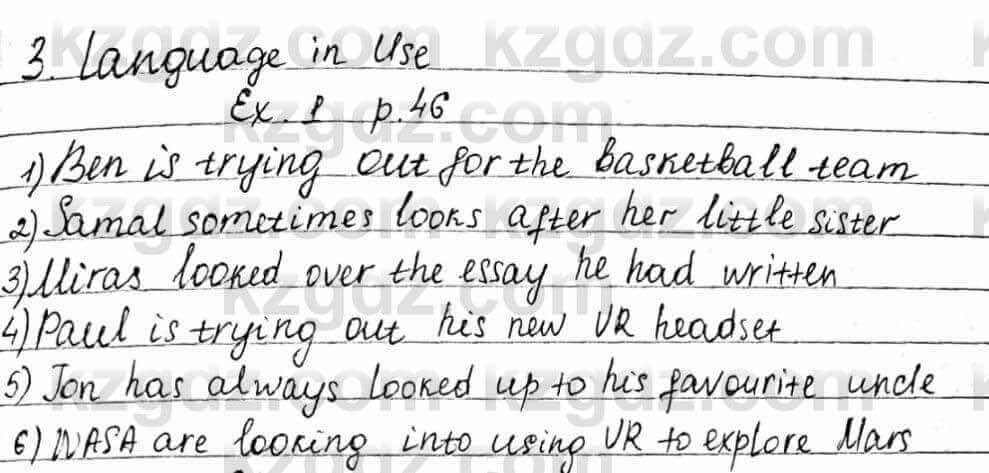 3. Language in Use
Ex. 1 p. 46
1) Ben is trying out for the basketball team
2) Samal sometimes looks after her little sister
3) Miras looked over the essay he had written
4) Paul is trying out his new VR headset
5) Jon has always looked up to his favourite uncle
6) NASA are looking into using VR to explore Mars